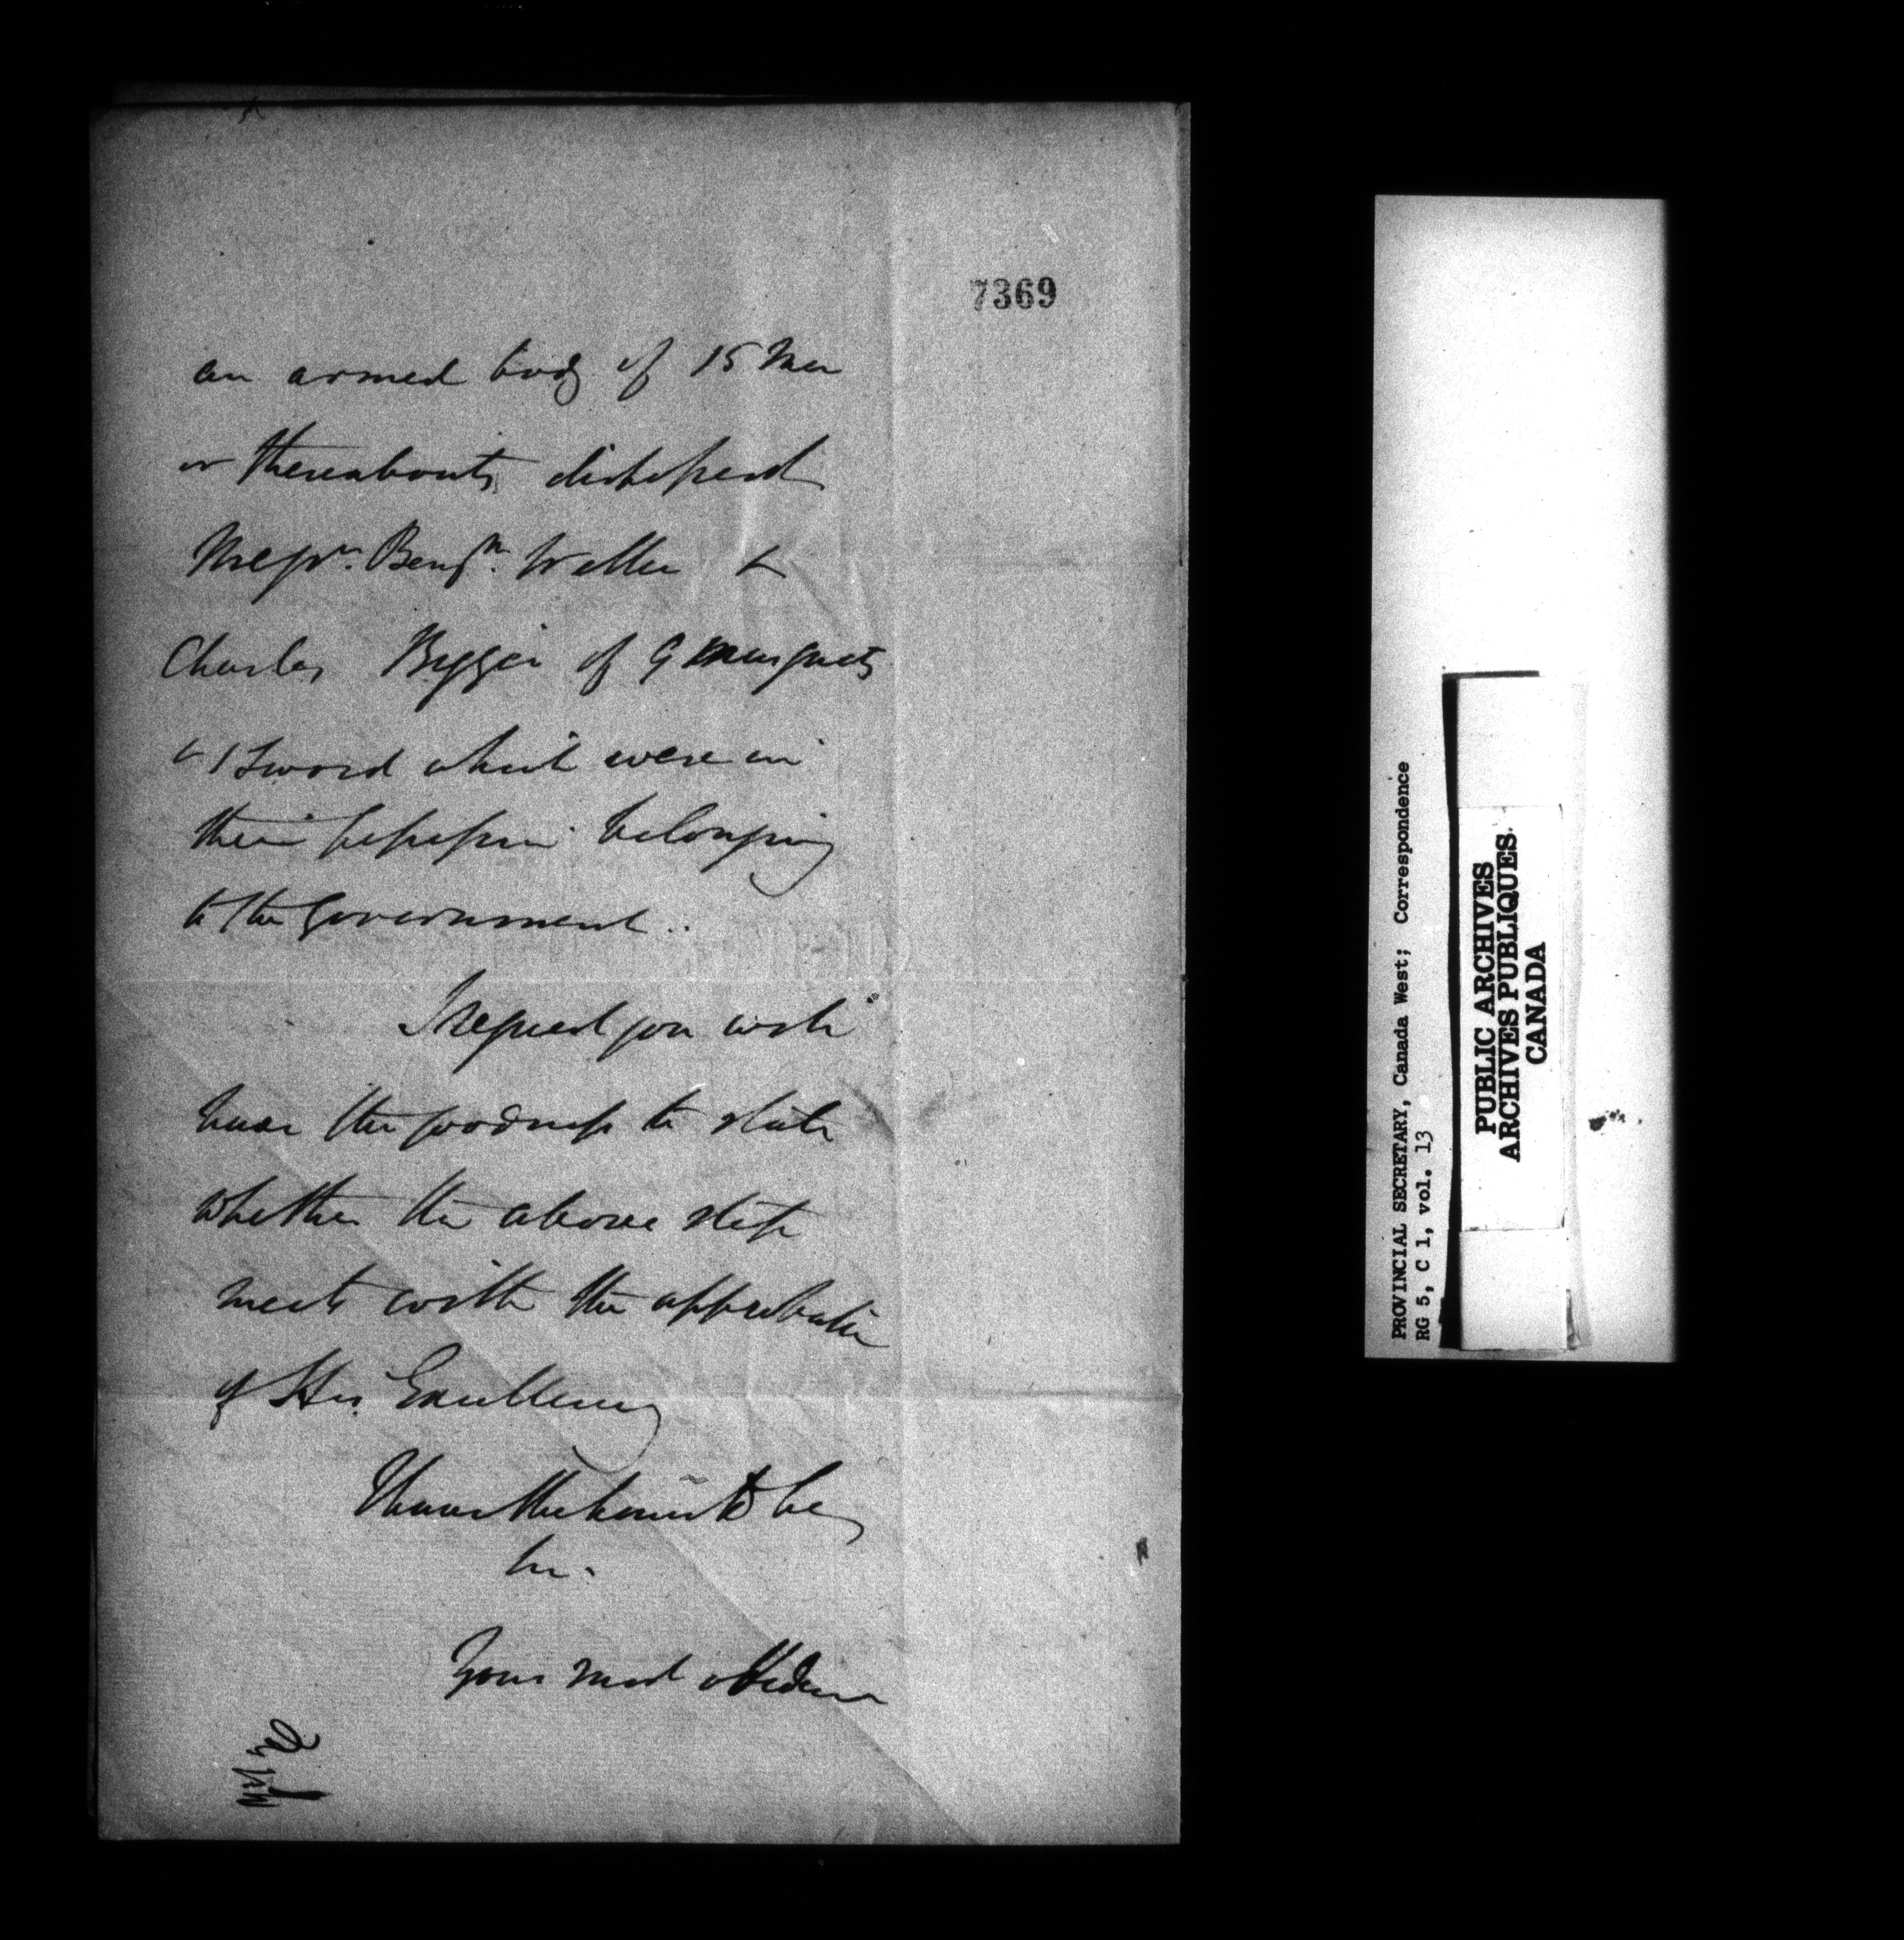 7369
an armed body of 15 Men
or thereabouts dispossessed
Messrs. Benjn. Weller &
Charles Bigger of 9 musquets
& 1 Sword which were in
their possession belonging
to the Government..
I request you will
have the goodness to state
whether the above step
meets with the approbation
of His Excellency
I have the honor to be
Sir.
Your most obedient
PROVINCIAL SECRETARY, Canada West; Correspondence
RG 5, C 1, vol. 13
PUBLIC ARCHIVES
ARCHIVES PUBLIQUES
CANADA